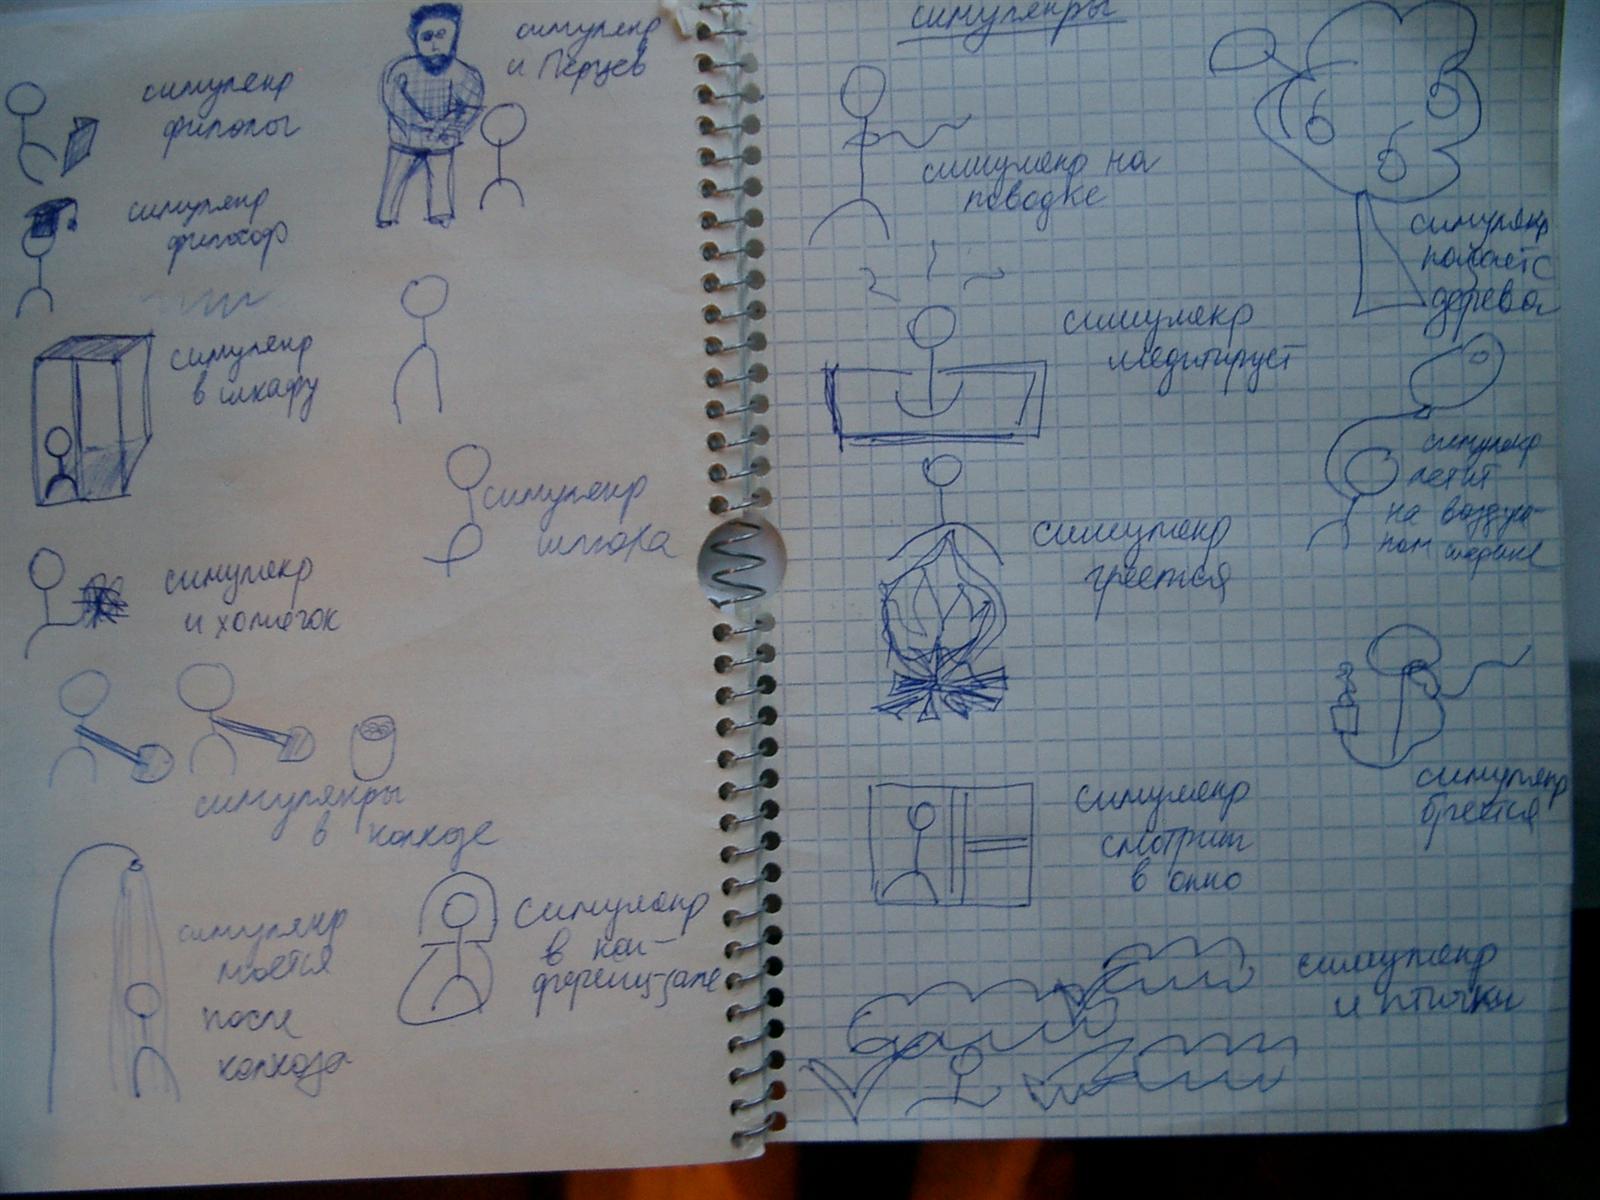 симулякр
филолог
симулякр
и Перцев
симулякр
философ
симулякр
в шкафу
симулякр
и хомячок
симулякры
в колхозе
симулякр
моется
после
колхоза
симулякр
в кон-
ференц-зале
симулякры
симулякр на
поводке
симулякр
медитирует
симулякр
греется
симулякр
смотрит
в окно
симулякр
и птички
симулякр
дерева
симулякр
летит
на воздуш-
ном шарике
симулякр
бреется